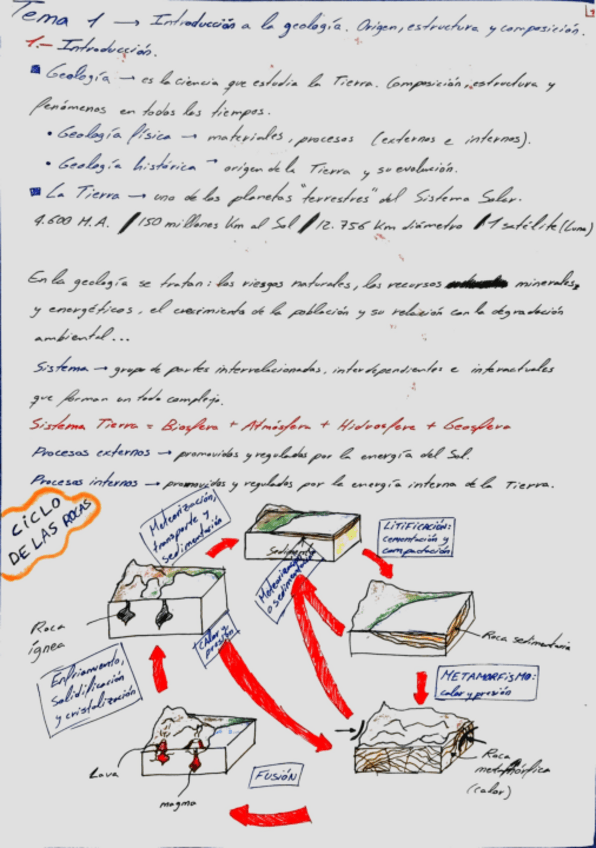 Tema 1 → Introducción a la geología. Origen, estructura y composición.
1.- Introducción.
Geología → es la ciencia que estudia la Tierra. Composición, estructura y
fenómenos en todos los tiempos.
• Geología física → materiales, procesos (externos e internos).
• Geología histórica → origen de la Tierra y su evolución.
La Tierra → uno de los planetas "terrestres" del Sistema Solar.
4.600 M.A. / 150 millones Km al Sol / 12.756 Km diámetro / 1 satélite (Luna)
En la geología se tratan: los riesgos naturales, los recursos minerales,
y energéticos, el crecimiento de la población y su relación con la degradación
ambiental...
Sistema → grupo de partes interrelacionadas, interdependientes e interactuales
que forman un todo complejo.
Sistema Tierra = Biosfera + Atmósfera + Hidrosfera + Geosfera
Procesos externos → promovidos y regulados por la energía del Sol.
Procesos internos → promovidos y regulados por la energía interna de la Tierra.
CICLO
DE LAS ROCAS
Meteorización,
transporte y
sedimentación
LITIFICACIÓN:
cementación y
compactación
Roca
ígnea
calor y
presión
Roca sedimentaria
Enfriamiento,
solidificación
y cristalización
METAMORFISMO:
calor y presión
Lava
magma
FUSIÓN
Roca
metamórfica
(calor)